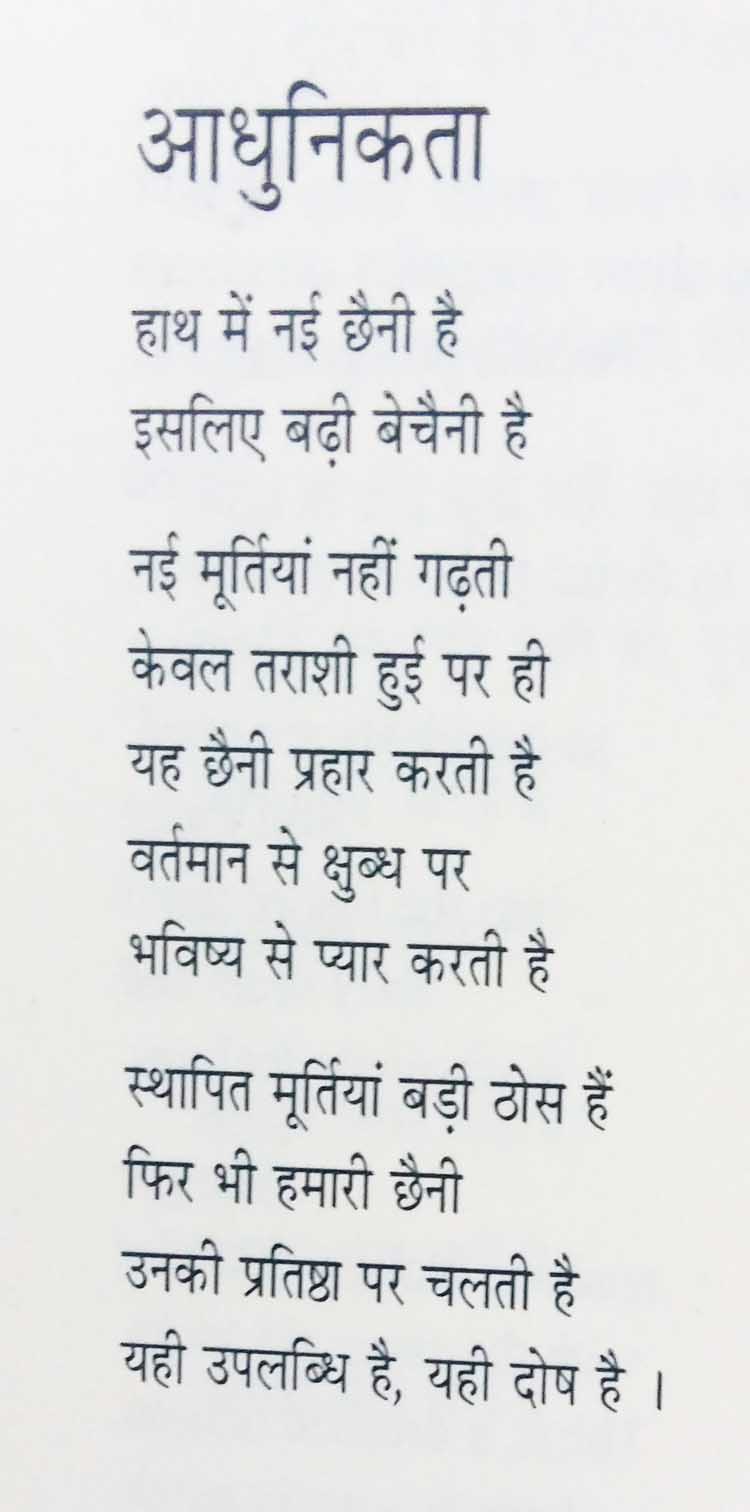 आधुनिकता
हाथ में नई छैनी है
इसलिए बढ़ी बेचैनी है
नई मूर्तियां नहीं गढ़ती
केवल तराशी हुई पर ही
यह छैनी प्रहार करती है
वर्तमान से क्षुब्ध पर
भविष्य से प्यार करती है
स्थापित मूर्तियां बड़ी ठोस हैं
फिर भी हमारी छैनी
उनकी प्रतिष्ठा पर चलती है
यही उपलब्धि है, यही दोष है ।